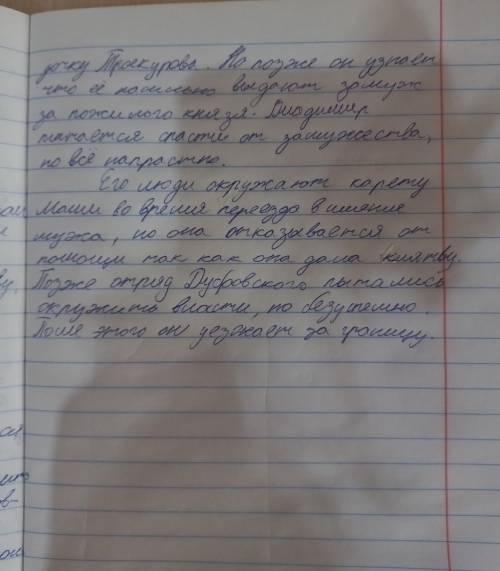 дочку Троекурова. Но позже он узнает
что её насильно выдают замуж
за пожилого князя. Владимир
пытается спасти от замужества,
но всё напрастно.
Его люди окружают карету
Маши во время переезда в имение
мужа, но она отказывается от
помощи так как она дала клятву.
Позже отряд Дубровского пытались
окружить власти, но безуспешно.
После этого он уезжает за границу.